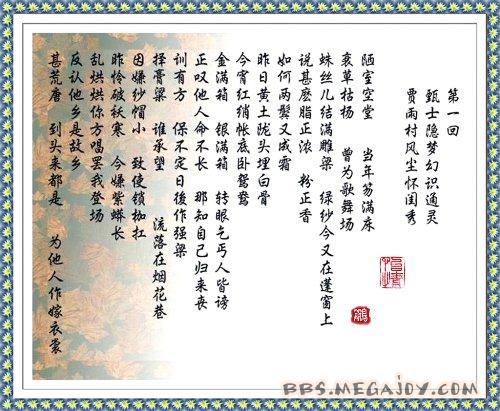 第一回
甄士隐梦幻识通灵
贾雨村风尘怀闺秀
陋室空堂 当年笏满床
衰草枯杨 曾为歌舞场
蛛丝儿结满雕梁 绿纱今又在蓬窗上
说甚麽脂正浓 粉正香
如何两鬓又成霜
昨日黄土陇头埋白骨
今宵红绡帐底卧鸳鸯
金满箱 银满箱 转眼乞丐人皆谤
正叹他人命不长 那知自己归来丧
训有方 保不定日後作强梁
择膏梁 谁承望 流落在烟花巷
因嫌纱帽小 致使锁枷扛
昨怜破袄寒 今嫌紫蟒长
乱烘烘你方唱罢我登场
反认他乡是故乡
甚荒唐 到头来都是 为他人作嫁衣裳
BBS.MEGAJOY.COM